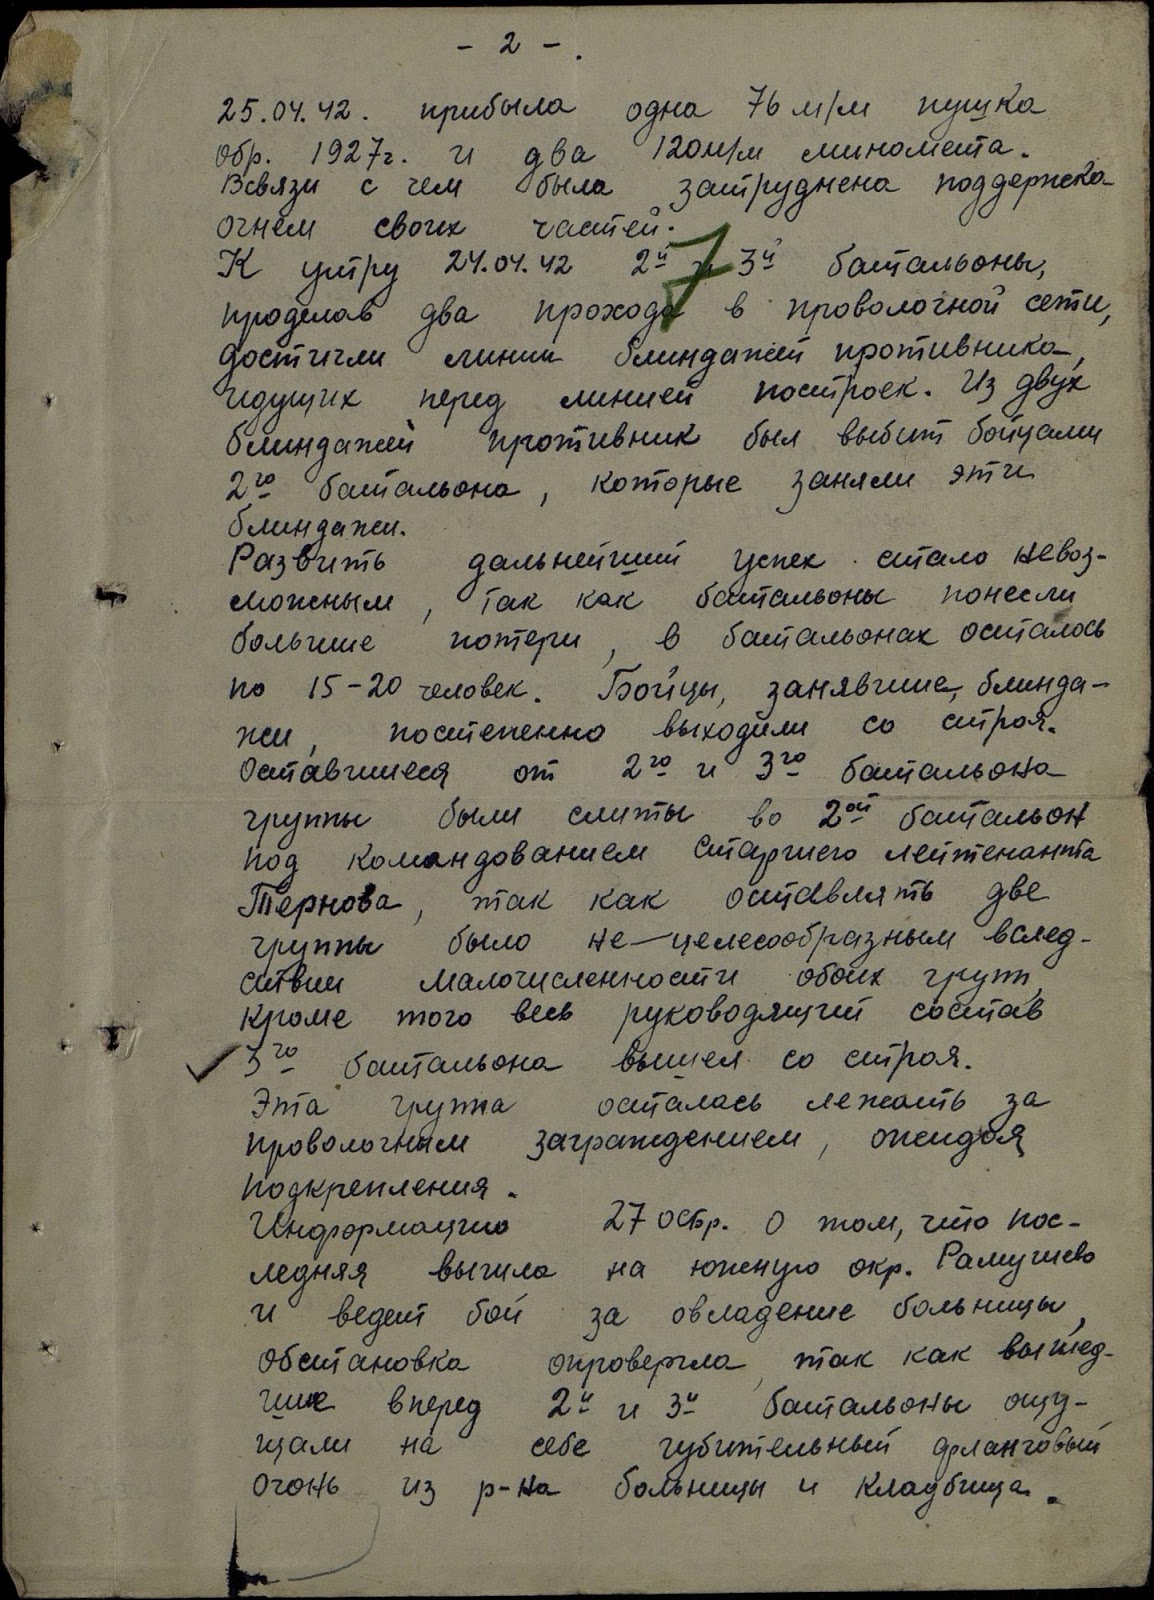 - 2 -.
25.04.42. прибыла одна 76 м/м пушка
обр. 1927г. и два 120м/м миномета.
Всвязи с чем была затруднена поддержка
огнем своих частей.
7
К утру 24.04.42 2й и 3й батальоны,
проделав два прохода в проволочной сети,
достигли линии блиндажей противника,
идущих перед линией построек. Из двух
блиндажей противник был выбит бойцами
2го батальона, которые заняли эти
блиндажи.
Развить дальнейший успех стало невоз-
можным, так как батальоны понесли
большие потери, в батальонах осталось
по 15-20 человек. Бойцы, занявшие, блинда-
жи, постепенно выходили со строя.
Оставшиеся от 2го и 3го батальона
группы были слиты во 2ой батальон
под командованием старшего лейтенанта
Тернова, так как оставлять две
группы было не-целесообразным вслед-
ствии малочисленности обоих групп,
кроме того весь руководящий состав
3го батальона вышел со строя.
Эта группа осталась лежать за
проволочным заграждением, ожидая
подкрепления.
Информацию 27 осбр. о том, что пос-
ледняя вышла на южную окр. Рамушево
и ведет бой за овладение больницы,
обстановка опровергла, так как вышед-
шие вперед 2й и 3й батальоны ощу-
щали на себе губительный фланговый
огонь из р-на больницы и кладбища.